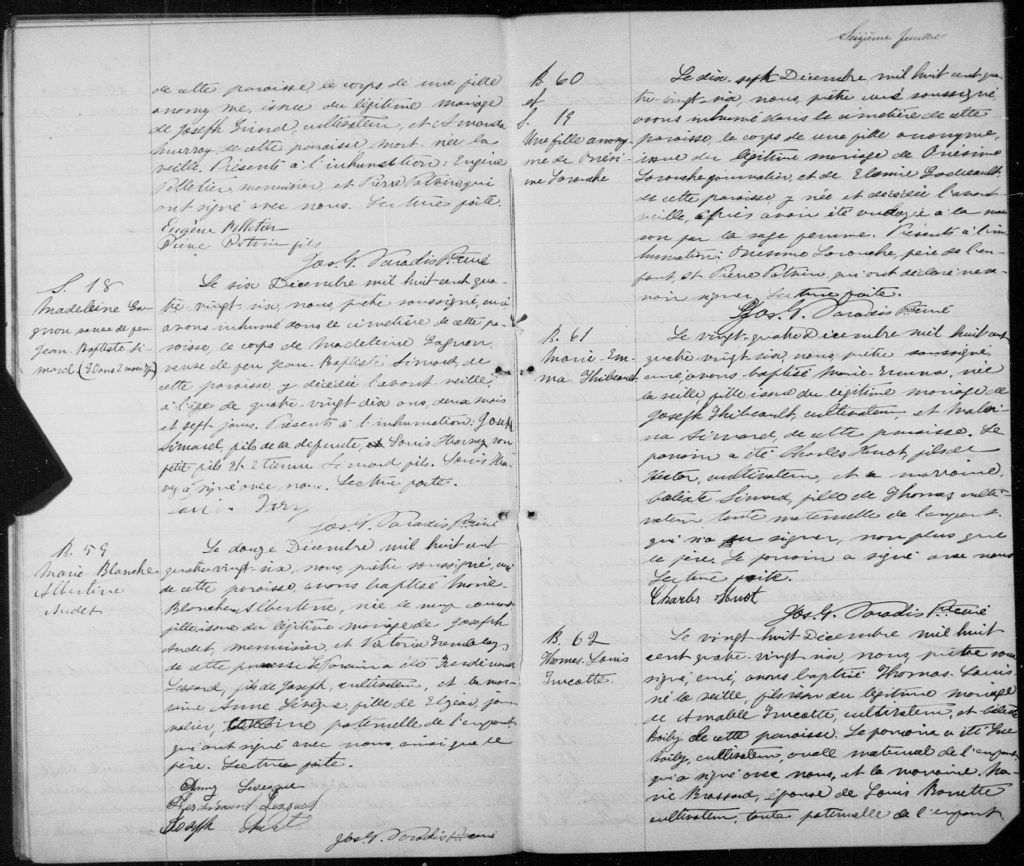 de cette paroisse, le corps de une fille
anonyme, issue du légitime mariage
de Joseph Girard, cultivateur, et
Murray de cette paroisse mort-née la
veille. Présents à l'inhumation: Eugène
Pelletier, menuisier, et Pierre Potvin qui
ont signé avec nous. Lecture faite.
Eugène Pelletier
Pierre Potvin fils
Jos. G. Paradis Ptre curé
S. 18
Madeleine Ga-
gnon veuve de feu
Jean-Baptiste Si-
mard
Le six Décembre mil huit cent qua-
tre-vingt-six, nous, prêtre soussigné, curé
avons inhumé dans le cimetière de cette pa-
roisse, le corps de Madeleine Gagnon,
veuve de feu Jean-Baptiste Simard, de
cette paroisse, y décédée l'avant veille,
à l'âge de quatre-vingt dix ans, deux mois
et sept jours. Présents à l'inhumation: Joseph
Simard, fils de la défunte, et Louis Harvey son
petit fils et Etienne Simard fils. Louis Har-
vey a signé avec nous. Lecture faite.
Jos. G. Paradis Ptre curé
B. 59
Marie Blanche
Albertine
Audet
Le douze Décembre mil huit cent
quatre vingt-six, nous, prêtre soussigné, curé
de cette paroisse avons baptisé Marie-
Blanche-Albertine, née le neuf courant
fille issue du légitime mariage de Joseph
Audet, menuisier, et Victoria Tremblay,
de cette paroisse. Le parrain a été Ferdinand
Lessard, fils de Joseph, cultivateur, et la mar-
raine Anne Lévêque, fille de Elzéar, jour-
nalier, paternelle de l'enfant
qui ont signé avec nous, ainsi que le
père. Lecture faite.
Anny Levesque
Ferdinand Lessard
Joseph Audet
Jos. G. Paradis Ptre curé
Seizième feuillet
B. 60
et
S. 19
Une fille anony-
me de Onési-
me Larouche
Le dix-sept Décembre mil huit cent qua-
tre-vingt-six, nous, prêtre curé soussigné
avons inhumé dans le cimetière de cette
paroisse, le corps de une fille anonyme,
issue du légitime mariage de Onésime
Larouche journalier, et de
de cette paroisse y née et décédée l'avant
veille, après avoir été ondoyée à la mai-
son par la sage femme. Présents à l'in-
humation: Onésime Larouche, père de l'en-
fant, et Pierre Potvin, qui ont déclaré ne sa-
voir signer. Lecture faite.
Jos. G. Paradis Ptre curé
B. 61
Marie-Em-
ma Thibeault
Le vingt-quatre Décembre mil huit cent
quatre vingt six, nous, prêtre soussigné,
curé, avons baptisé Marie-Emma, née
la veille, fille issue du légitime mariage de
Joseph Thibeault, cultivateur, et
Simard, de cette paroisse. Le
parrain a été Charles Huot fils de
Hector, cultivateur, et la marraine
Calixte Simard, fille de Thomas culti-
vateur, tante maternelle de l'enfant,
qui n'a su signer, non plus que
le père. Le parrain a signé avec nous
Lecture faite.
Charles Huot
Jos. G. Paradis Ptre curé
B. 62
Thomas-Louis
Turcotte
Le vingt-huit Décembre mil huit
cent quatre-vingt-six nous, prêtre sous-
signé, curé, avons baptisé Thomas-Louis
né la veille, fils issu du légitime mariage
de Amable Turcotte, cultivateur, et
Boily de cette paroisse. Le parrain a été
Boily, cultivateur, oncle maternel de l'enfant,
qui a signé avec nous, et la marraine Ma-
rie Brassard, épouse de Louis
cultivateur, tante paternelle de l'enfant